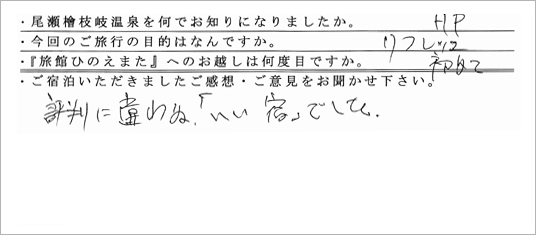 ・尾瀬檜枝岐温泉を何でお知りになりましたか。 HP
・今回のご旅行の目的はなんですか。 リフレッシュ
・『旅館ひのえまた』へのお越しは何度目ですか。 初めて
・ご宿泊いただきましたご感想・ご意見をお聞かせ下さい。
評判に違わぬ、「いい宿」でした。